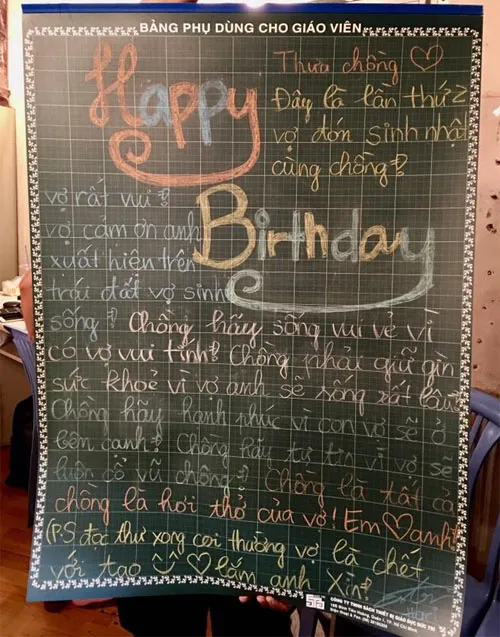 BẢNG PHỤ DÙNG CHO GIÁO VIÊN
Happy
Birthday
Thưa chồng ♡
Đây là lần thứ 2
vợ đón sinh nhật
cùng chồng!
vợ rất vui!
vợ cảm ơn anh
xuất hiện trên
trái đất vợ sinh
sống! Chồng hãy sống vui vẻ vì
có vợ vui tính! Chồng phải giữ gìn
sức khoẻ vì vợ anh sẽ sống rất lâu
Chồng hãy hạnh phúc vì con vợ sẽ ở
bên cạnh! Chồng hãy tự tin vì vợ sẽ
luôn cổ vũ chồng! Chồng là tất cả
chồng là hơi thở của vợ! Em ♡ anh!
(P.S đọc thư xong coi thường vợ là chết
với tao ♡ lắm anh Xìn!
CÔNG TY TNHH SÁCH THIẾT BỊ GIÁO DỤC ĐỨC TRÍ